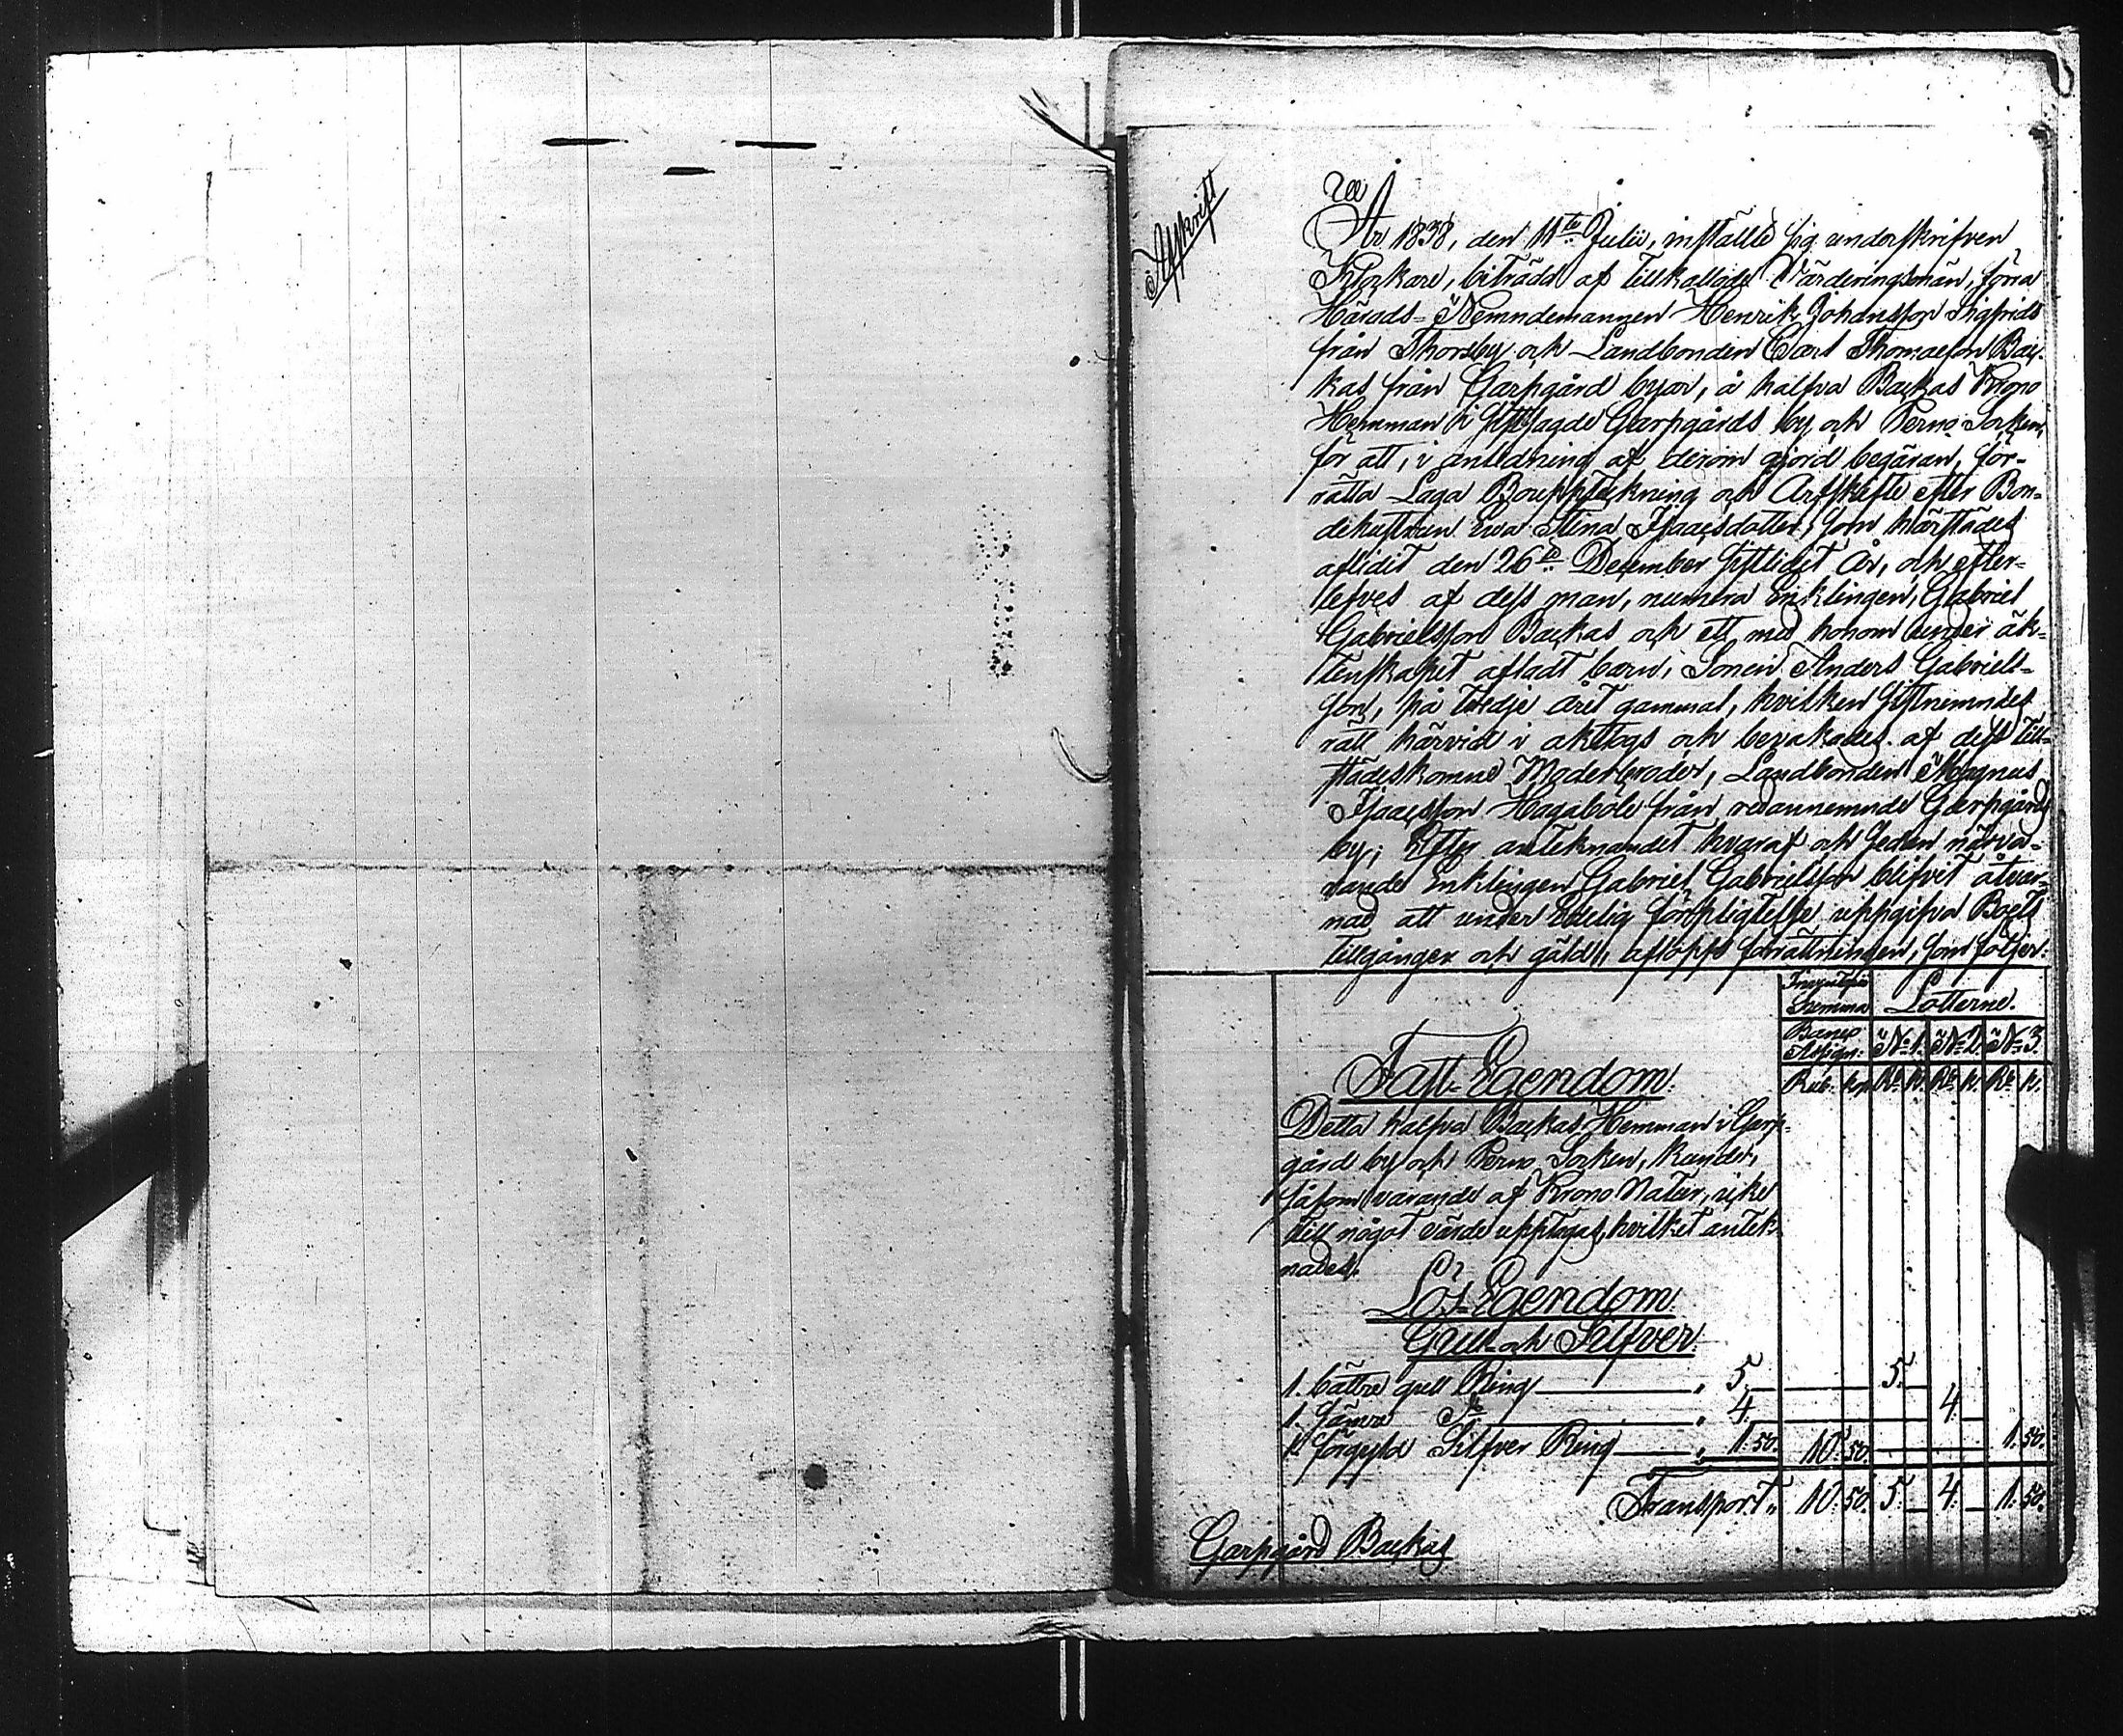 Afskrift
År 1838, den 11te Julii, instälte sig underskrifven
Klockare, biträdd af tillkallade Värderingsmän, förra
Härads-Nemndemannen Henrik Johansson Sigfrids
från Thorsby och Landbonden Carl Thomasson Bac-
kas från Garpgård byar, å halfva Backas Krono
Hemman i sistsagde Garpgårds by och Perno Socken,
för att, i anledning af derom gjord begäran, för-
rätta Laga Bouppteckning och Arfskifte efter Bon-
dehustrun Ewa Stina Isaacsdotter, som härstädes
aflidit den 26te December sistlidit år, och efter-
lefves af dess man, numera Enklingen, Gabriel
Gabrielsson Backas och ett med honom under äk-
tenskapet afladt barn, Sonen Anders Gabriels-
son, på tredje året gammal, hvilken sistnemndes
rätt härvid i akttogs och bevakades af dess till-
städeskomne Moderbroder, Landbonden Magnus
Isaacsson Hagaböle från redannemnde Garpgårds
by; Efter antecknandet hvaraf och sedan närva-
rande Enklingen Gabriel Gabrielsson blifvit åtvar-
nad att under Edelig förpligtelse uppgifva Boets
tillgångar och gäld, aflopp förrättningen, som följer:
Summa Lotterne.
Banco Assign: No 1. No 2. No 3.
Rub. kop. Rb. k. Rb. k. Rb. k.
Fast-Egendom.
Detta halfva Backas Hemman i Garp-
gård by och Perno Socken, kunde,
såsom varande af Krono Natur, icke
till något värde upptagas, hvilket antek-
nades.
Lös-Egendom
Gull och Silfver
1. bättre gull Ring " 5. 5. –
1. sämre do " 4. 4. –
1. förgyld Silfver Ring " 1. 50. 10. 50. 1. 50.
Transport " 10. 50. 5. – 4. – 1. 50.
Garpgård Backas